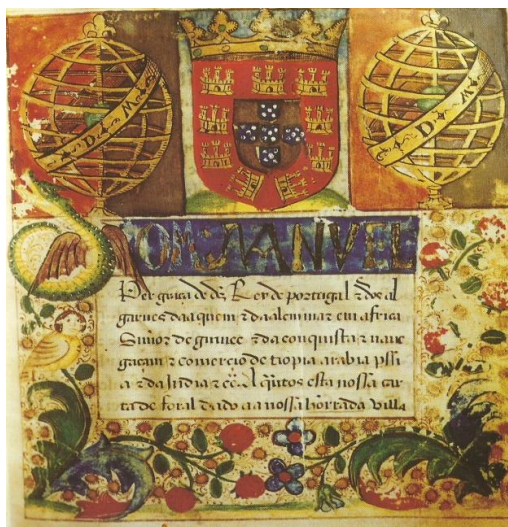 D M
D M
DOM MANVEL
Per graça de ds Rey de portugal z dos al
garues daaquem z daalem mar em africa
Sñnor de guinee z da conquista z naue
gaçam z comercio de tiopia arabia pssia
a z da India z
esta nossa car
ta de foral dado aa nossa villa